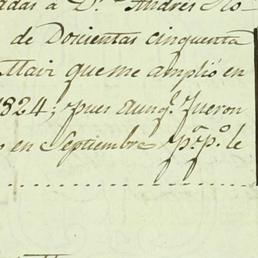 adas a D.ⁿ Andres Ro-
de Docientas cinquenta
que me amplió en
1824; pues aunq.ᵉ fueron
en Septiembre le